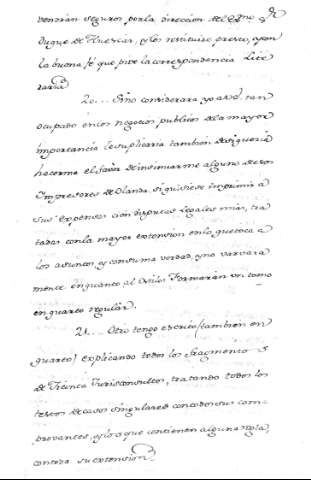 vendrán seguros por la dirección del Exmo. Sr
Duque de Huescar, y los restituiré presto, y con
la buena fé que pide la correspondencia Lite
raria
20... Sino considerara yo a vd. tan
ocupado en los negocios publicos de la mayor
importancia le suplicaria tambien
hacerme el favor de insinuarme alguno de esos
Impresores de Olanda, si quisiese imprimir á
sus expensas cien disputas legales mias, tra
tadas con la mayor extension en lo que toca a
los asuntos, y con suma verdad, y no barbara
mente en quanto al Estilo. Formarán un tomo
en quarto regular.
21... Otro tengo escrito (tambien en
quarto) explicando todos los fragmentos
de Treinta Jurisconsultos, tratando todos los
textos de casos singulares con todos sus com
provantes, y los que contienen alguna regla,
con toda su extension.